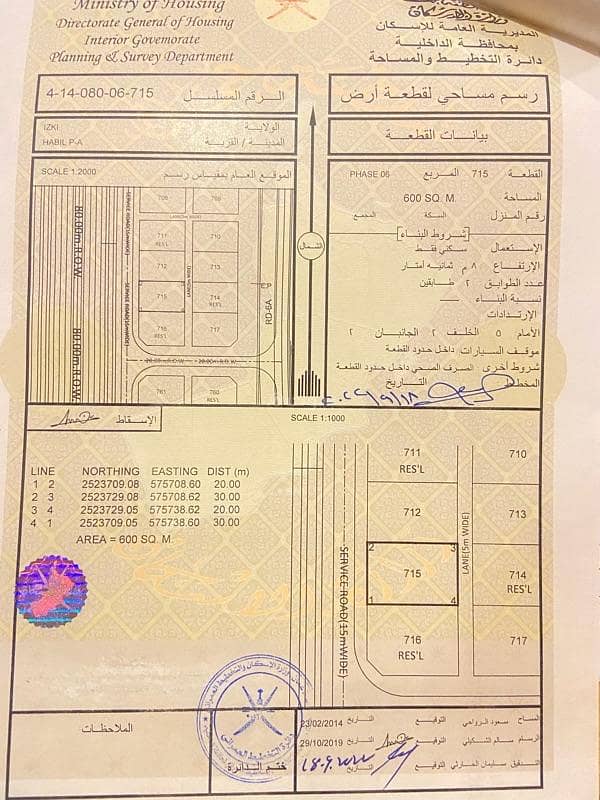 Ministry of Housing
Directorate General of Housing
Interior Governorate
Planning & Survey Department
المديرية العامة للإسكان
بمحافظة الداخلية
دائرة التخطيط والمساحة
رسم مساحي لقطعة أرض
الرقم المسلسل 4-14-080-06-715
بيانات القطعة
الولاية IZKI
المدينة / القرية HABIL P-A
SCALE 1:2000 الموقع العام بمقياس رسم
القطعة 715 المربع PHASE 06
المساحة 600 SQ. M.
رقم المنزل السكة المجمع
شروط البناء
الإستعمال سكني فقط
الإرتفاع ٨ م ثمانيه أمتار
عدد الطوابق ٢ طابقين
نسبة البناء
الإرتدادات
الأمام ٥ الخلف ٢ الجانبان ٢
موقف السيارات داخل حدود القطعة
شروط أخرى الصرف الصحي داخل حدود القطعة
المخطط التاريخ
الشمال
80.00m R.O.W.
80.00m R.O.W.
SERVICE ROAD(15mWIDE)
709
711
RES'L
710
715
714
RES'L
716
RES'L
717
E.P
RD-6A
20.00m R.O.W.
761
RES'L
760
RES'L
الإسقاط
SCALE 1:1000
LINE NORTHING EASTING DIST (m)
1 2 2523709.08 575708.60 20.00
2 3 2523729.08 575708.62 30.00
3 4 2523729.05 575738.62 20.00
4 1 2523709.05 575738.60 30.00
AREA = 600 SQ. M.
711
RES'L
710
712
713
2 3
715
1 4
714
RES'L
716
RES'L
717
LANE(5m WIDE)
SERVICE ROAD(15mWIDE)
الملاحظات
ختم الدائرة
المساح سعود الرواحي التوقيع التاريخ 23/02/2014
الرسام سالم الشكيلي التوقيع التاريخ 29/10/2019
التدقيق سليمان الحارثي التوقيع التاريخ